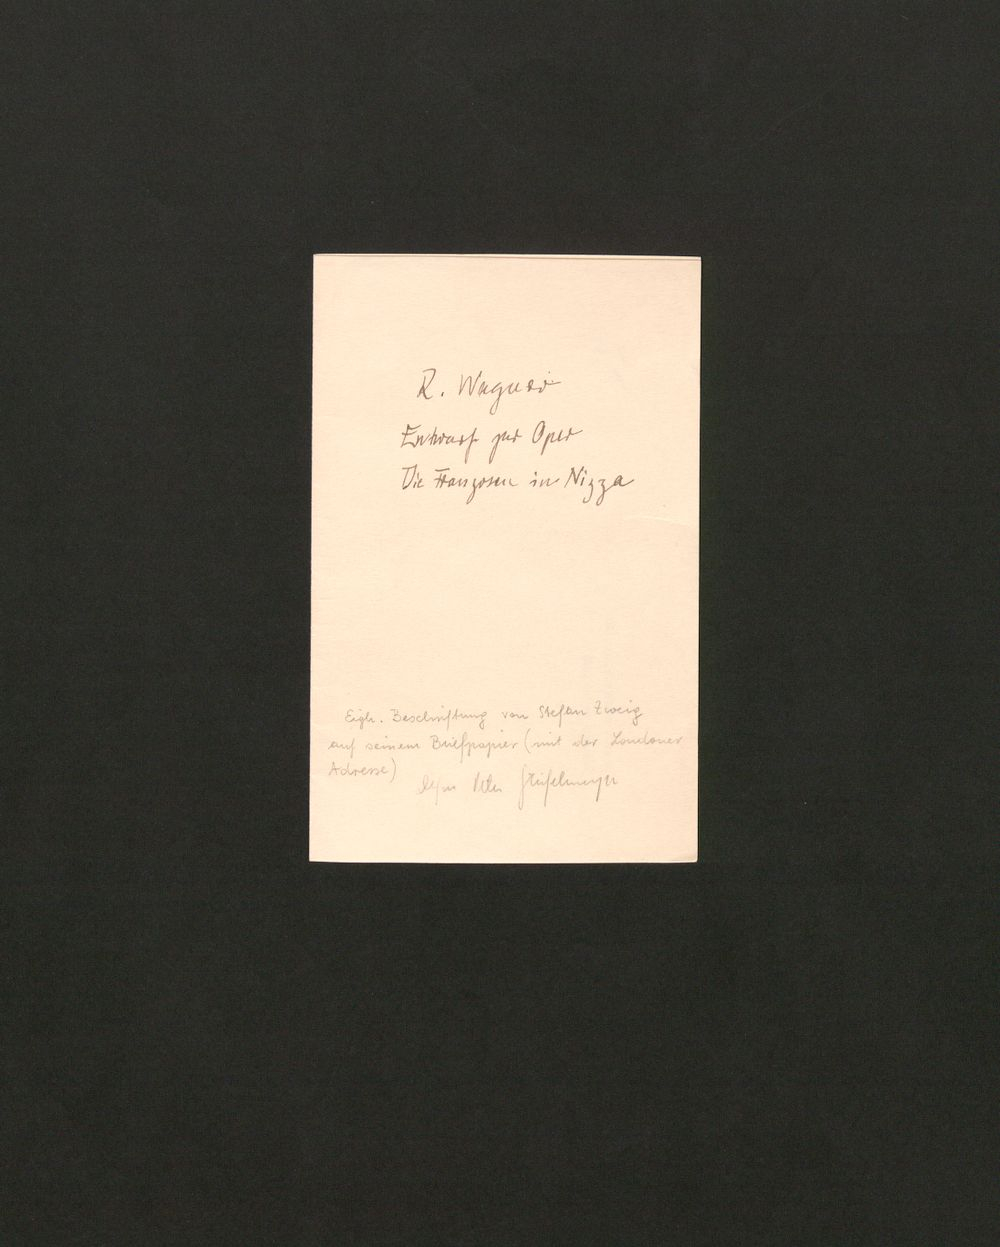 R. Wagner
Entwurf zur Oper
Die Franzosen in Nizza
Eigh. Beschriftung von Stefan Zweig
auf seinem Briefpapier (mit der Londoner
Adresse)